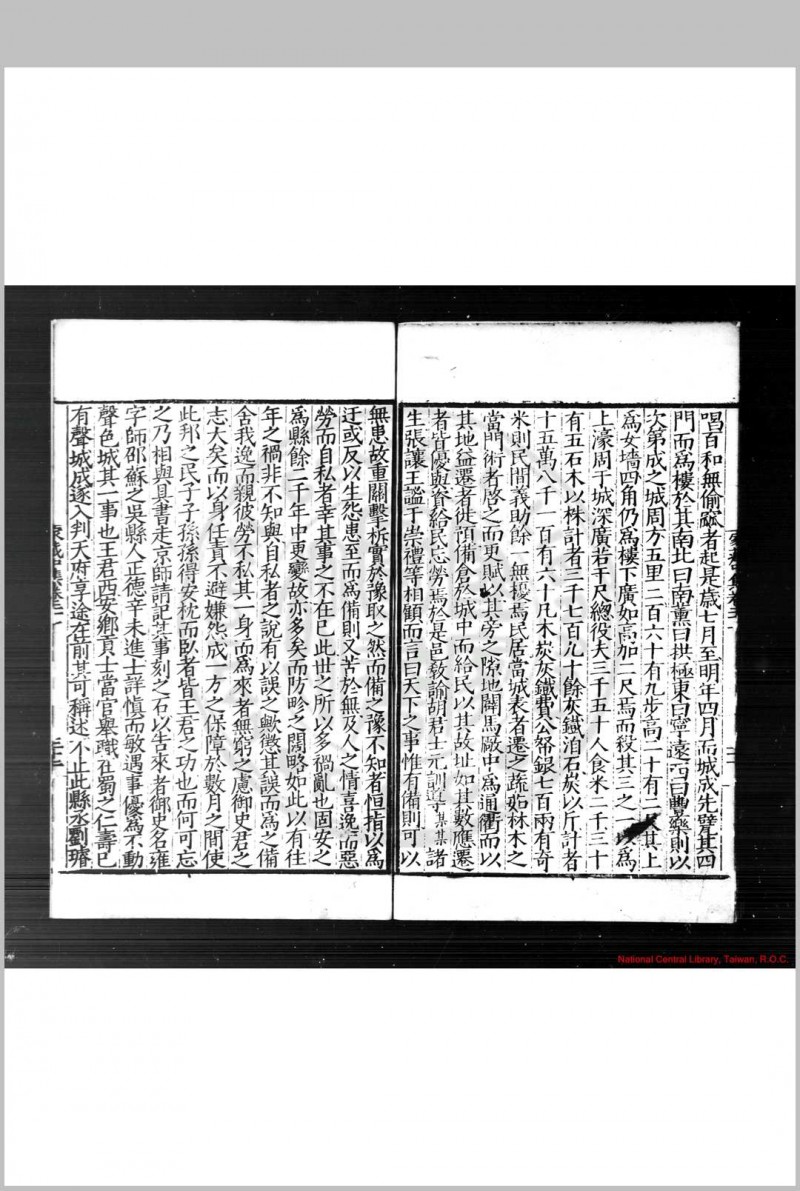 唱百和無偷窳者起是歳七月至明年四月而城成先甓其四
門而爲樓於其南北曰南薰曰拱極東曰寧遠西曰豊樂則以
次第成之城周方五里二百六十有九步高二十有二 其上
爲女墻四角仍爲樓下廣如高加二尺焉而殺其三之一以爲
上濠周于城深廣若干尺總役夫三千五十人食米二千三十
有五石木以株計者三千七百九十餘灰鐵油石炭以斤計者
十五萬八千一百有六十凡木炭灰鐵費公帑銀七百兩有奇
米則民間義助餘一無擾焉民居當城表者遷之蔬茹林木之
當門術者啓之而更賦以其旁之隙地闢馬廠中爲通衢而以
其地益遷者徙預備倉於城中而給民以其故址如其數應遷
者皆優與資給民忘勞焉於是邑敎諭胡君士元訓導某某諸
生張讓王謐于崇禮等相顧而言曰天下之事惟有備則可以
無患故重關擊柝實於豫取之然而備之豫不知者恒指以爲
迂或反以生怨患至而爲備則又苦於無及人之情喜逸而惡
勞而自私者幸其事之不在已此世之所以多禍亂也固安之
爲縣餘二千年中更變故亦多矣而防畛之闊略如此以有往
年之禍非不知與自私者之說有以誤之歟懲其誤而爲之備
舍我逸而親彼勞不私其一身而爲來者無窮之慮御史君之
志大矣而以身任責不避嫌怨成一方之保障於數月之間使
此邦之民子子孫孫得安枕而臥者皆王君之功也而何可忘
之乃相與具書走京師請記其事刻之石以告來者御史名雍
字師邵蘇之吳縣人正德辛未進士詳愼而敏遇事優爲不動
聲色城其一事也王君西安鄉貢士當官舉職在蜀之仁壽已
有聲城成逐入判天府享途在前其可稱述不止此縣丞劉
東
National Central Library, Taiwan, R.O.C.